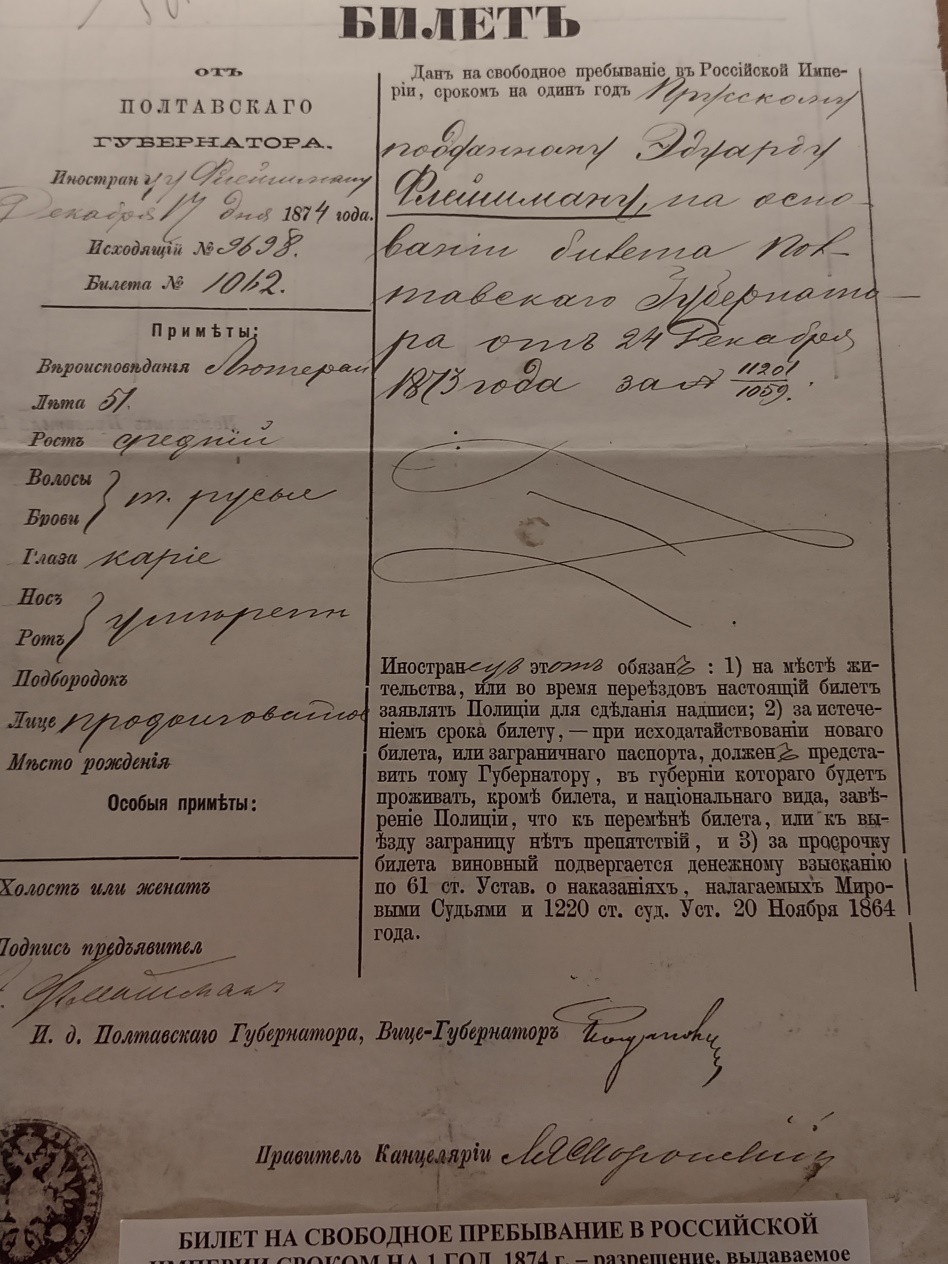 БИЛЕТЪ
ОТЪ
ПОЛТАВСКАГО
ГУБЕРНАТОРА.
Иностранцу Флейшману
Декабря 17 дня 1874 года.
Исходящій № 9698.
Билета № 1062.
Примѣты:
Вѣроисповѣданія Лютеран
Лѣта 51.
Ростъ средній
Волосы
Брови } т. русые
Глаза каріе
Носъ
Ротъ } умѣрен
Подбородокъ
Лице продолговатое
Мѣсто рожденія
Особыя примѣты:
Холостъ или женатъ
Подпись предъявител
Флейшманъ
Данъ на свободное пребываніе въ Россійской Импе-
ріи, срокомъ на одинъ годъ Прусскому
подданному Эдуарду
Флейшману, на осно-
ваніи билета Пол-
тавскаго Губернато-
ра отъ 24 Декабря
1873 года за № 11201
1059.
Иностранецъ этотъ обязанъ: 1) на мѣстѣ жи-
тельства, или во время переѣздовъ настоящій билетъ
заявлять Полиціи для сдѣланія надписи; 2) за истече-
ніемъ срока билету, — при исходатайствованіи новаго
билета, или заграничнаго паспорта, долженъ предста-
вить тому Губернатору, въ губерніи котораго будетъ
проживать, кромѣ билета, и національнаго вида, завѣ-
реніе Полиціи, что къ перемѣнѣ билета, или къ вы-
ѣзду заграницу нѣтъ препятствій, и 3) за просрочку
билета виновный подвергается денежному взысканію
по 61 ст. Устав. о наказаніяхъ, налагаемыхъ Миро-
выми Судьями и 1220 ст. суд. Уст. 20 Ноября 1864
года.
И. д. Полтавскаго Губернатора, Вице-Губернаторъ
Правитель Канцеляріи
БИЛЕТ НА СВОБОДНОЕ ПРЕБЫВАНИЕ В РОССИЙСКОЙ
ИМПЕРИИ СРОКОМ НА 1 ГОД. 1874 г. – разрешение, выдаваемое